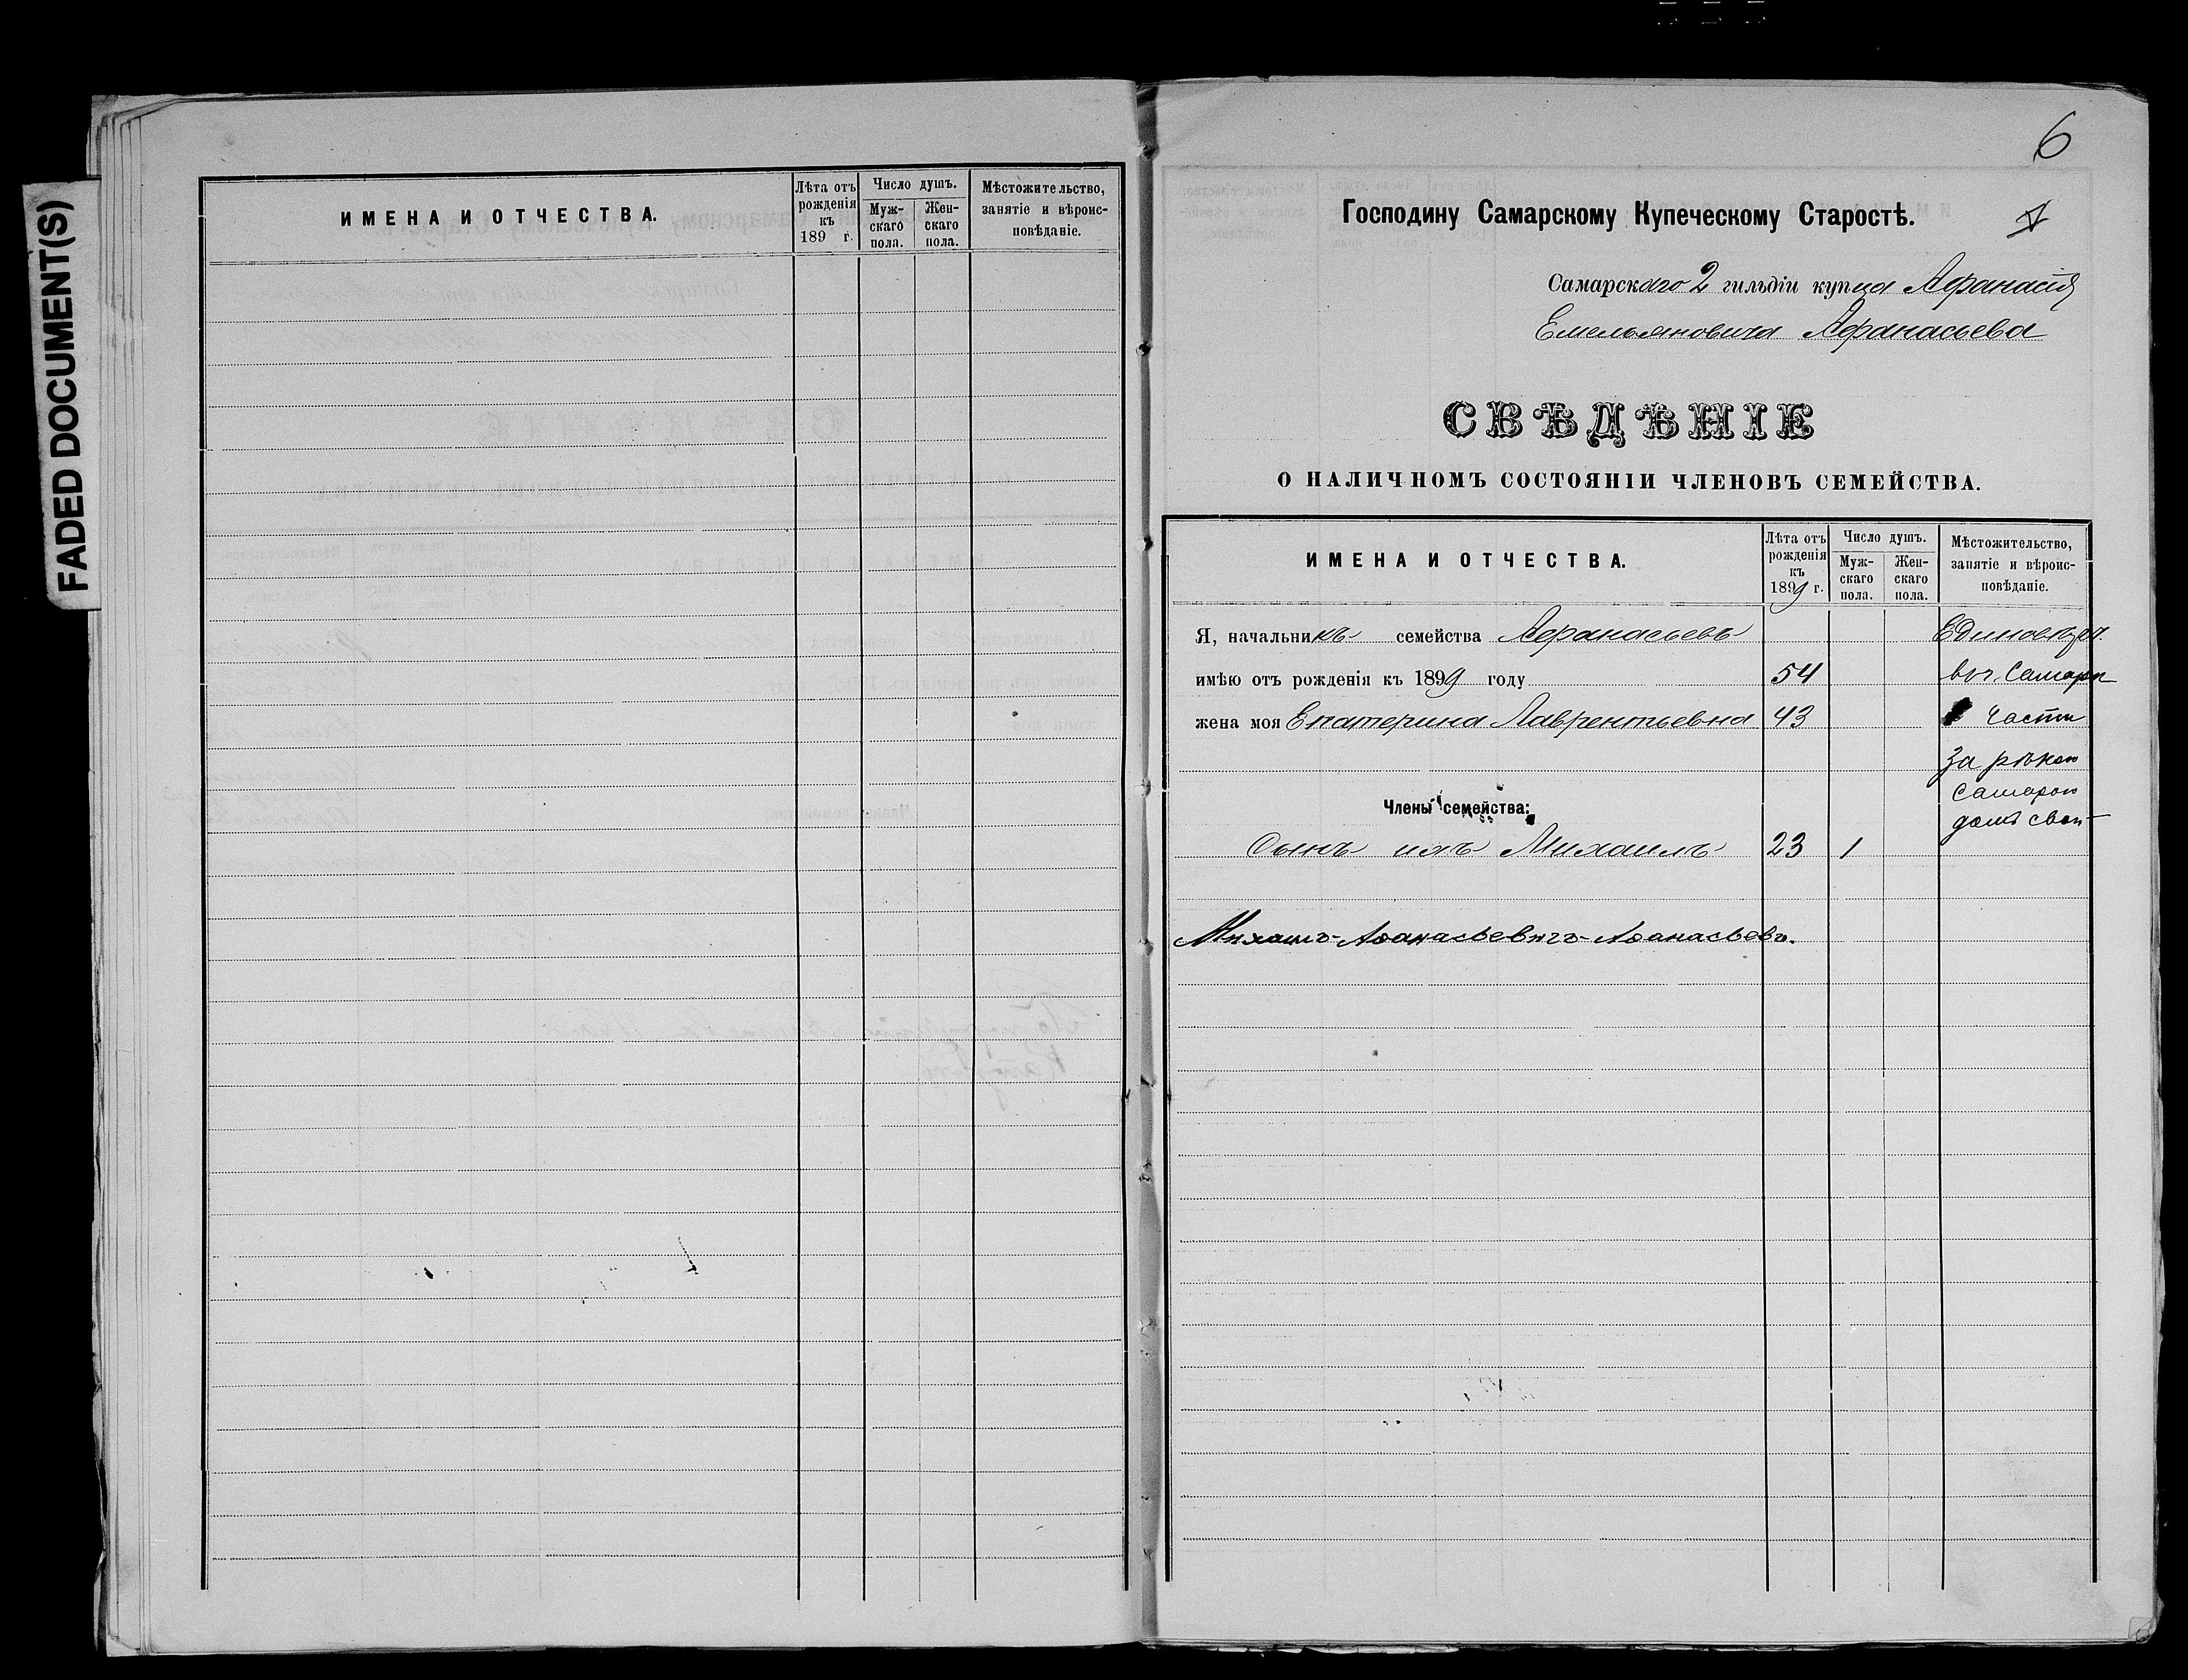 FADED DOCUMENT(S)
ИМЕНА И ОТЧЕСТВА.
Лѣта отъ рожденія къ 189 г.
Число душъ.
Мужскаго пола.
Женскаго пола.
Мѣстожительство, занятіе и вѣроисповѣданіе.
6
Господину Самарскому Купеческому Старостѣ.
Самарскаго 2 гильдіи купца Афанасія
Емельяновича Афанасьева
СВѢДѢНІЕ
О НАЛИЧНОМЪ СОСТОЯНІИ ЧЛЕНОВЪ СЕМЕЙСТВА.
ИМЕНА И ОТЧЕСТВА.
Лѣта отъ рожденія къ 1899 г.
Число душъ.
Мужскаго пола.
Женскаго пола.
Мѣстожительство, занятіе и вѣроисповѣданіе.
Я, начальникъ семейства Афанасьевъ
имѣю отъ рожденія къ 1899 году 54 въ г. Самарѣ
жена моя Екатерина Лаврентьевна 43 части
за рѣкою
Самарою
Члены семейства:
домѣ
Сынъ ихъ Михаилъ 23 1
Михаилъ Афанасьевичъ Афанасьевъ.